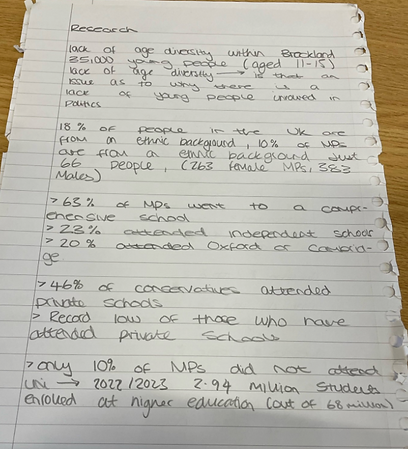 Research
lack of age diversity within Brockland
35,000 young people (aged 11-15)
lack of age diversity → is that an
issue as to why there is a
lack of young people involved in
Politics
18% of people in the UK are
from an ethnic background, 10% of MPs
are from an ethnic background Just
66 people, (263 female MPs, 383
Males)
> 63% of MPs went to a compr-
ehensive school
> 23% attended independent school
> 20% attended Oxford or Cambrid-
ge
> 46% of conservatives attended
private schools
> Record low of those who have
attended private schools
> only 10% of MPs did not attend
uni → 2022/2023 2.94 million students
enrolled at higher education (out of 68 million)